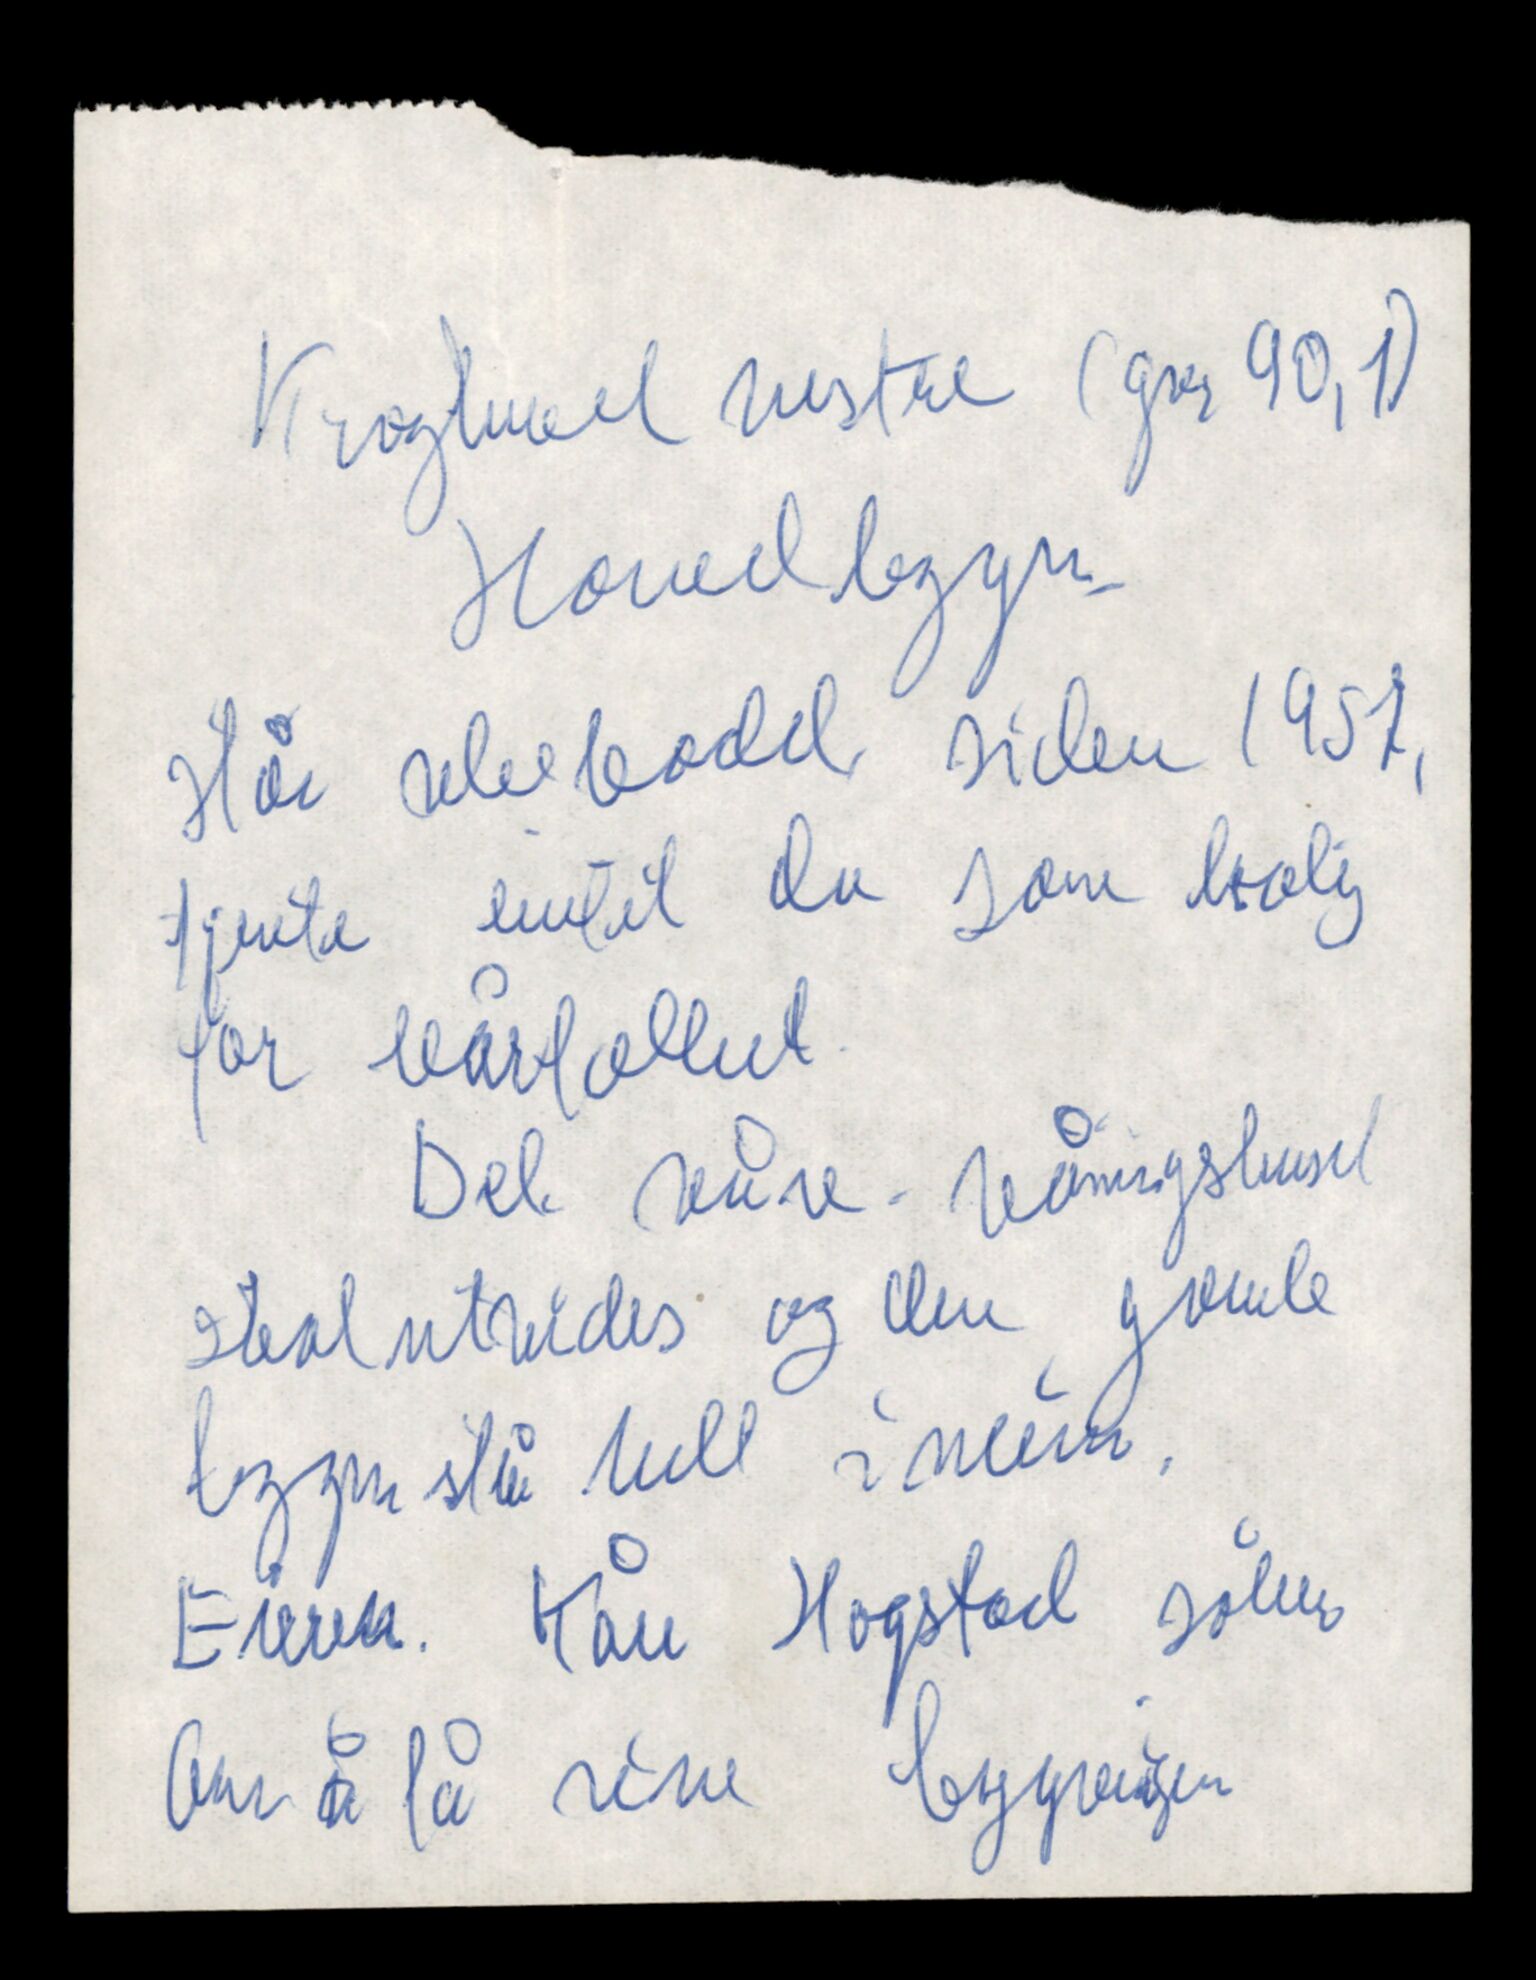 Krogtved vestre (gnr 90,1)
Hovedbygn.
Här ubebodd siden 1957,
tjente inntil da som bolig
for kårfolket.
Det nåve. våningshuset
skal utvides og den gamle
bygn står helt i veien.
Eieren. Kåre Hogstad søker
om å få rive bygningen